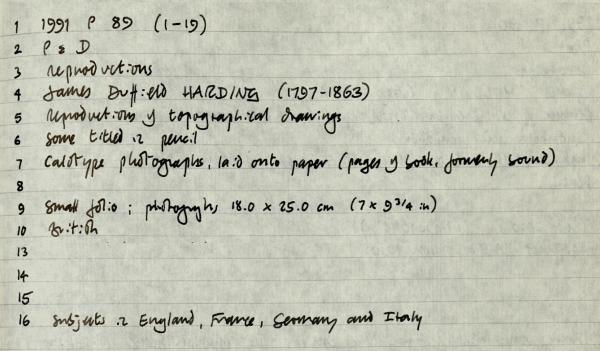 1 1991 P 89 (1-19)
2 P & D
3 reproductions
4 James Duffield HARDING (1797-1863)
5 reproductions of topographical drawings
6 some titled in pencil
7 Calotype photographs, laid onto paper (pages of book, formerly bound)
8
9 Small folio; photographs 18.0 x 25.0 cm (7 x 9 3/4 in)
10 British
13
14
15
16 Subjects in England, France, Germany and Italy